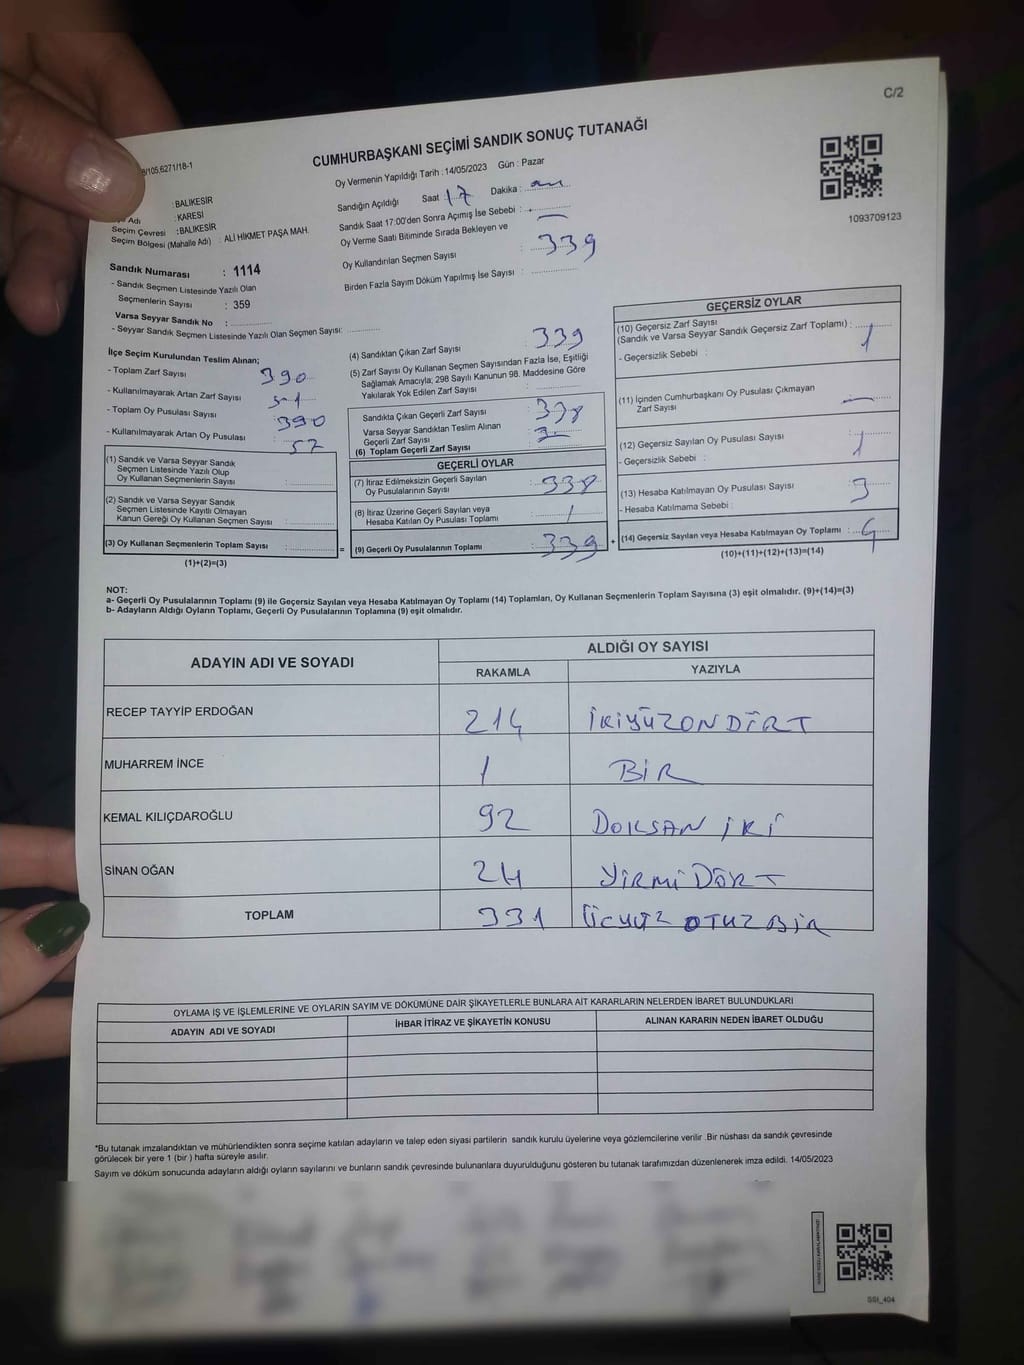 C/2
CUMHURBAŞKANI SEÇİMİ SANDIK SONUÇ TUTANAĞI
/105.6271/18-1
Oy Vermenin Yapıldığı Tarih : 14/05/2023 Gün : Pazar
: BALIKESİR
Adı : KARESİ
Seçim Çevresi : BALIKESİR
Seçim Bölgesi (Mahalle Adı) : ALİ HİKMET PAŞA MAH.
Sandığın Açıldığı Saat 17 Dakika :
Sandık Saat 17:00'den Sonra Açımış İse Sebebi : -
Oy Verme Saati Bitiminde Sırada Bekleyen ve
Oy Kullandırılan Seçmen Sayısı : 339
Birden Fazla Sayım Döküm Yapılmış İse Sayısı :
1093709123
Sandık Numarası : 1114
- Sandık Seçmen Listesinde Yazılı Olan
Seçmenlerin Sayısı : 359
Varsa Seyyar Sandık No :
- Seyyar Sandık Seçmen Listesinde Yazılı Olan Seçmen Sayısı:
İlçe Seçim Kurulundan Teslim Alınan;
- Toplam Zarf Sayısı 390
- Kullanılmayarak Artan Zarf Sayısı : 51
- Toplam Oy Pusulası Sayısı 390
- Kullanılmayarak Artan Oy Pusulası : 52
(1) Sandık ve Varsa Seyyar Sandık
Seçmen Listesinde Yazılı Olup
Oy Kullanan Seçmenlerin Sayısı :
(2) Sandık ve Varsa Seyyar Sandık
Seçmen Listesinde Kayıtlı Olmayan
Kanun Gereği Oy Kullanan Seçmen Sayısı :
(3) Oy Kullanan Seçmenlerin Toplam Sayısı :
(1)+(2)=(3)
=
(4) Sandıktan Çıkan Zarf Sayısı 339
(5) Zarf Sayısı Oy Kullanan Seçmen Sayısından Fazla İse, Eşitliği
Sağlamak Amacıyla; 298 Sayılı Kanunun 98. Maddesine Göre
Yakılarak Yok Edilen Zarf Sayısı :
Sandıkta Çıkan Geçerli Zarf Sayısı : 338
Varsa Seyyar Sandıktan Teslim Alınan
Geçerli Zarf Sayısı :
(6) Toplam Geçerli Zarf Sayısı :
GEÇERLİ OYLAR
(7) İtiraz Edilmeksizin Geçerli Sayılan
Oy Pusulalarının Sayısı : 338
(8) İtiraz Üzerine Geçerli Sayılan veya
Hesaba Katılan Oy Pusulası Toplamı : 1
(9) Geçerli Oy Pusulalarının Toplamı : 339
+
GEÇERSİZ OYLAR
(10) Geçersiz Zarf Sayısı
(Sandık ve Varsa Seyyar Sandık Geçersiz Zarf Toplamı) : 1
- Geçersizlik Sebebi :
(11) İçinden Cumhurbaşkanı Oy Pusulası Çıkmayan
Zarf Sayısı : -
(12) Geçersiz Sayılan Oy Pusulası Sayısı : 1
- Geçersizlik Sebebi :
(13) Hesaba Katılmayan Oy Pusulası Sayısı : 3
- Hesaba Katılmama Sebebi :
(14) Geçersiz Sayılan veya Hesaba Katılmayan Oy Toplamı :
(10)+(11)+(12)+(13)=(14)
NOT:
a- Geçerli Oy Pusulalarının Toplamı (9) ile Geçersiz Sayılan veya Hesaba Katılmayan Oy Toplamı (14) Toplamları, Oy Kullanan Seçmenlerin Toplam Sayısına (3) eşit olmalıdır. (9)+(14)=(3)
b- Adayların Aldığı Oyların Toplamı, Geçerli Oy Pusulalarının Toplamına (9) eşit olmalıdır.
ADAYIN ADI VE SOYADI ALDIĞI OY SAYISI
RAKAMLA YAZIYLA
RECEP TAYYİP ERDOĞAN 214 İKİYÜZONDÖRT
MUHARREM İNCE 1 BİR
KEMAL KILIÇDAROĞLU 92 DOKSAN İKİ
SİNAN OĞAN 24 YİRMİ DÖRT
TOPLAM 331 ÜÇYÜZ OTUZ BİR
OYLAMA İŞ VE İŞLEMLERİNE VE OYLARIN SAYIM VE DÖKÜMÜNE DAİR ŞİKAYETLERLE BUNLARA AİT KARARLARIN NELERDEN İBARET BULUNDUKLARI
ADAYIN ADI VE SOYADI İHBAR İTİRAZ VE ŞİKAYETİN KONUSU ALINAN KARARIN NEDEN İBARET OLDUĞU
*Bu tutanak imzalandıktan ve mühürlendikten sonra seçime katılan adayların ve talep eden siyasi partilerin sandık kurulu üyelerine veya gözlemcilerine verilir .Bir nüshası da sandık çevresinde
görülecek bir yere 1 (bir ) hafta süreyle asılır.
Sayım ve döküm sonucunda adayların aldığı oyların sayılarını ve bunların sandık çevresinde bulunanlara duyurulduğunu gösteren bu tutanak tarafımızdan düzenlenerek imza edildi. 14/05/2023
SSI_404